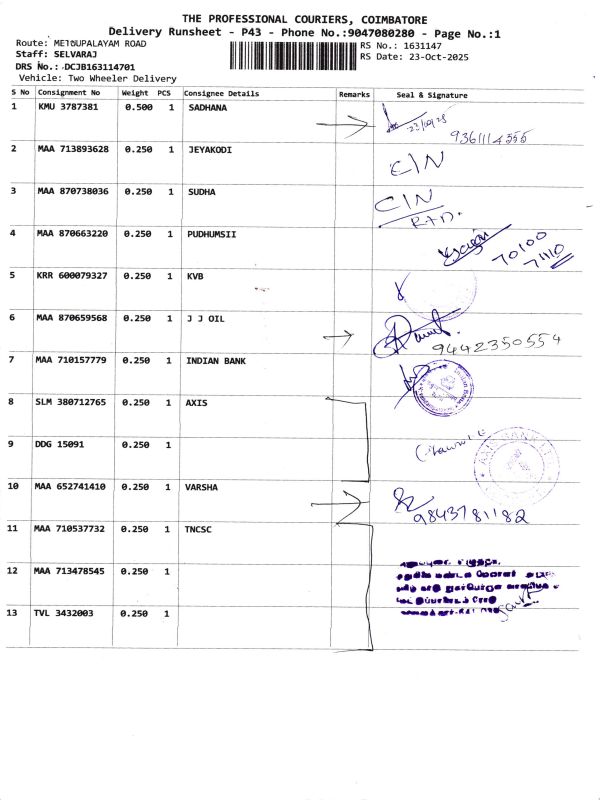 THE PROFESSIONAL COURIERS, COIMBATORE
Delivery Runsheet - P43 - Phone No.:9047080280 - Page No.:1
Route: METTUPALAYAM ROAD
RS No.: 1631147
Staff: SELVARAJ
RS Date: 23-Oct-2025
DRS No.: DCJB163114701
Vehicle: Two Wheeler Delivery
S No Consignment No Weight PCS Consignee Details Remarks Seal & Signature
1 KMU 3787381 0.500 1 SADHANA
9361114355
2 MAA 713893628 0.250 1 JEYAKODI
CIN
3 MAA 870738036 0.250 1 SUDHA
CIN
4 MAA 870663220 0.250 1 PUDHUMSII
70100
71110
5 KRR 600079327 0.250 1 KVB
6 MAA 870659568 0.250 1 J J OIL
9442350554
7 MAA 710157779 0.250 1 INDIAN BANK
8 SLM 380712765 0.250 1 AXIS
9 DDG 15091 0.250 1
AXIS BANK LTD
10 MAA 652741410 0.250 1 VARSHA
9843781182
11 MAA 710537732 0.250 1 TNCSC
12 MAA 713478545 0.250 1
13 TVL 3432003 0.250 1